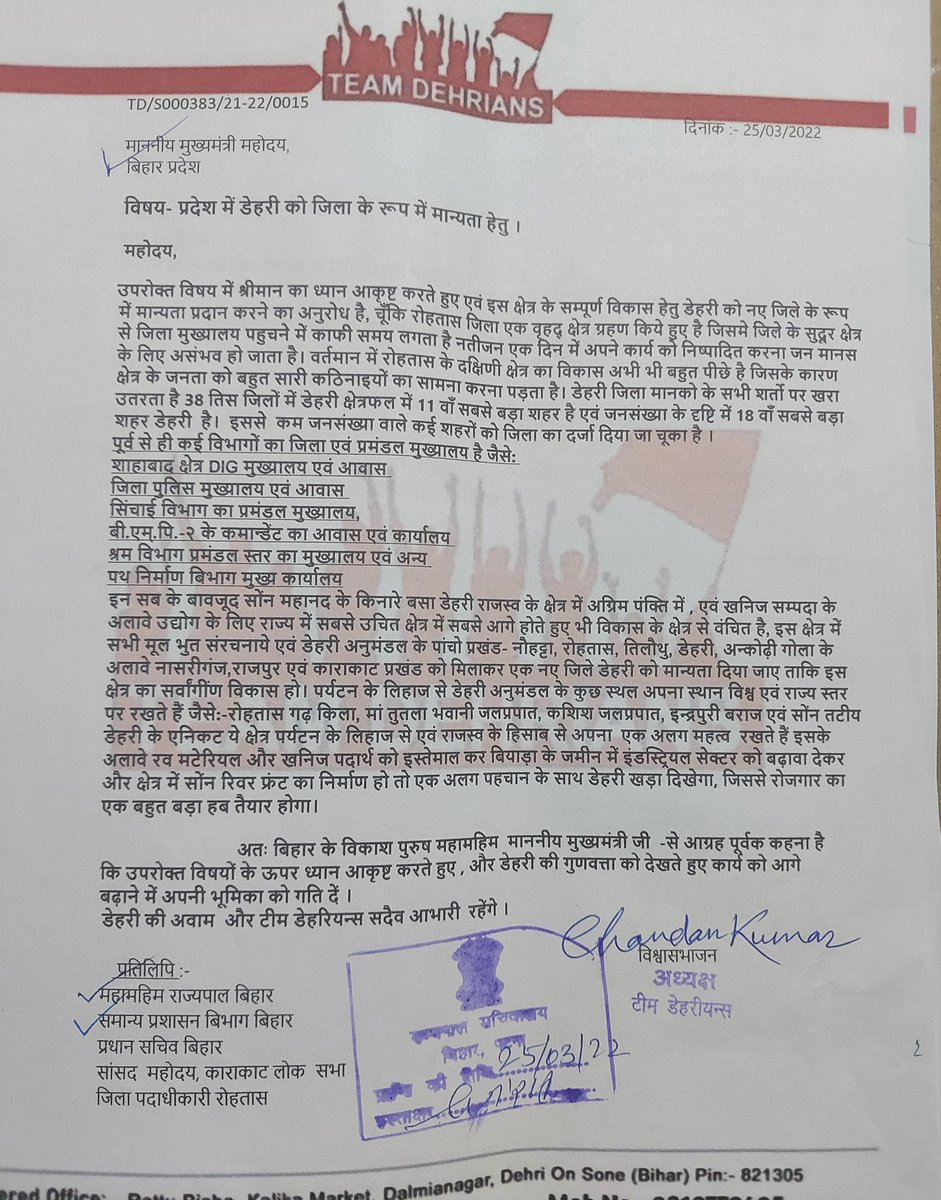 TEAM DEHRIANS
TD/S000383/21-22/0015
दिनांक :- 25/03/2022
माननीय मुख्यमंत्री महोदय,
बिहार प्रदेश
विषय- प्रदेश में डेहरी को जिला के रूप में मान्यता हेतु ।
महोदय,
उपरोक्त विषय में श्रीमान का ध्यान आकृष्ट करते हुए एवं इस क्षेत्र के सम्पूर्ण विकास हेतु डेहरी को नए जिले के रूप
में मान्यता प्रदान करने का अनुरोध है, चूँकि रोहतास जिला एक वृहद् क्षेत्र ग्रहण किये हुए है जिसमे जिले के सुदूर क्षेत्र
से जिला मुख्यालय पहुचने में काफी समय लगता है नतीजन एक दिन में अपने कार्य को निष्पादित करना जन मानस
के लिए असंभव हो जाता है। वर्तमान में रोहतास के दक्षिणी क्षेत्र का विकास अभी भी बहुत पीछे है जिसके कारण
क्षेत्र के जनता को बहुत सारी कठिनाइयों का सामना करना पड़ता है। डेहरी जिला मानको के सभी शर्तो पर खरा
उतरता है 38 तिस जिलों में डेहरी क्षेत्रफल में 11 वाँ सबसे बड़ा शहर है एवं जनसंख्या के दृष्टि में 18 वाँ सबसे बड़ा
शहर डेहरी है। इससे कम जनसंख्या वाले कई शहरों को जिला का दर्जा दिया जा चूका है ।
पूर्व से ही कई विभागों का जिला एवं प्रमंडल मुख्यालय है जैसे:
शाहाबाद क्षेत्र DIG मुख्यालय एवं आवास
जिला पुलिस मुख्यालय एवं आवास
सिंचाई विभाग का प्रमंडल मुख्यालय,
बी.एम्.पि.-२ के कमान्डेंट का आवास एवं कार्यालय
श्रम विभाग प्रमंडल स्तर का मुख्यालय एवं अन्य
पथ निर्माण बिभाग मुख्य कार्यालय
इन सब के बावजूद सोंन महानद के किनारे बसा डेहरी राजस्व के क्षेत्र में अग्रिम पंक्ति में , एवं खनिज सम्पदा के
अलावे उद्योग के लिए राज्य में सबसे उचित क्षेत्र में सबसे आगे होते हुए भी विकास के क्षेत्र से वंचित है, इस क्षेत्र में
सभी मूल भुत संरचनाये एवं डेहरी अनुमंडल के पांचो प्रखंड- नौहट्टा, रोहतास, तिलौथु, डेहरी, अन्कोढ़ी गोला के
अलावे नासरीगंज,राजपुर एवं काराकाट प्रखंड को मिलाकर एक नए जिले डेहरी को मान्यता दिया जाए ताकि इस
क्षेत्र का सर्वांगींण विकास हो। पर्यटन के लिहाज से डेहरी अनुमंडल के कुछ स्थल अपना स्थान विश्व एवं राज्य स्तर
पर रखते हैं जैसे:-रोहतास गढ़ किला, मां तुतला भवानी जलप्रपात, कशिश जलप्रपात, इन्द्रपुरी बराज एवं सोंन तटीय
डेहरी के एनिकट ये क्षेत्र पर्यटन के लिहाज से एवं राजस्व के हिसाब से अपना एक अलग महत्व रखते हैं इसके
अलावे रव मटेरियल और खनिज पदार्थ को इस्तेमाल कर बियाड़ा के जमीन में इंडस्ट्रियल सेक्टर को बढ़ावा देकर
और क्षेत्र में सोंन रिवर फ्रंट का निर्माण हो तो एक अलग पहचान के साथ डेहरी खड़ा दिखेगा, जिससे रोजगार का
एक बहुत बड़ा हब तैयार होगा।
अतः बिहार के विकाश पुरुष महामहिम माननीय मुख्यमंत्री जी -से आग्रह पूर्वक कहना है
कि उपरोक्त विषयों के ऊपर ध्यान आकृष्ट करते हुए , और डेहरी की गुणवत्ता को देखते हुए कार्य को आगे
बढ़ाने में अपनी भूमिका को गति दें ।
डेहरी की अवाम और टीम डेहरियन्स सदैव आभारी रहेंगे ।
Chandan Kumar
विश्वासभाजन
अध्यक्ष
टीम डेहरीयन्स
प्रतिलिपि :-
महामहिम राज्यपाल बिहार
समान्य प्रशासन बिभाग बिहार
प्रधान सचिव बिहार
सांसद महोदय, काराकाट लोक सभा
जिला पदाधीकारी रोहतास
राज्यपाल सचिवालय
बिहार, पटना
25/03/22
हस्ताक्षर
Kalika Market, Dalmianagar, Dehri On Sone (Bihar) Pin:- 821305